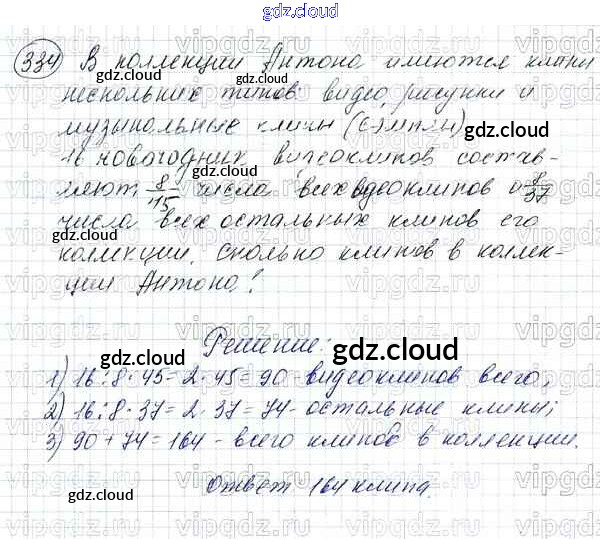 gdz.cloud
334) В коллекции Антона имеются клипы
нескольких типов: видео, рисунки и
музыкальные клипы (сэмплы)
16 новогодних видеоклипов состав-
ляют 8/45 числа всех видеоклипов и 8/37
числа всех остальных клипов его
коллекции. Сколько клипов в коллек-
ции Антона?
Решение:
1) 16:8·45=2·45=90 - видеоклипов всего;
2) 16:8·37=2·37=74 - остальные клипы;
3) 90+74=164 - всего клипов в коллекции.
Ответ 164 клипа.